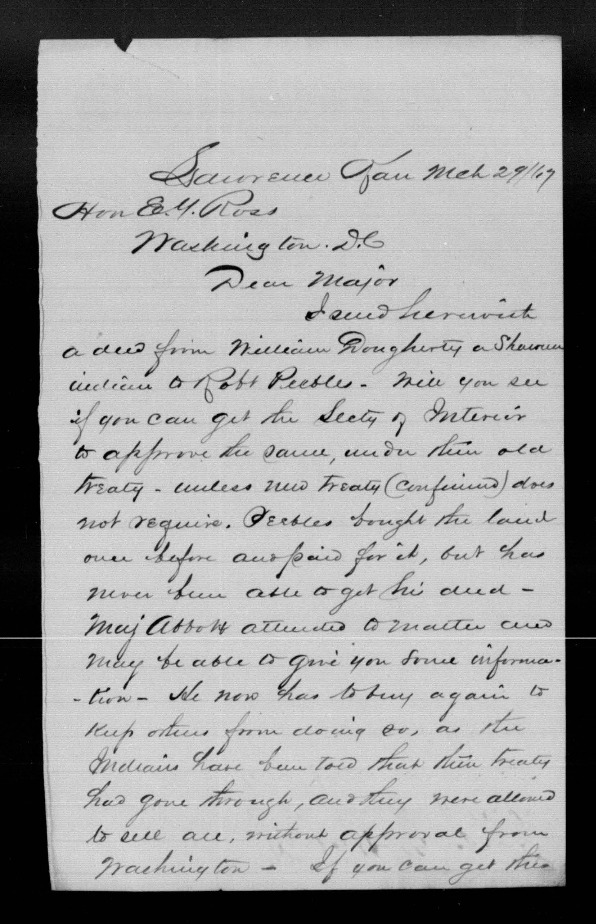 Lawrence Kan Mch 29/67
Hon E. G. Ross
Washington. D.C
Dear Major
I send herewith
a deed from William Dougherty a Shawnee
indian to Robt Peebles - Will you see
if you can get the Secty of Interior
to approve the same, under their old
treaty - unless new treaty (confirmed) does
not require. Peebles bought the land
once before and paid for it, but has
never been able to get his deed -
Maj Abbott attended to matter and
may be able to give you some informa-
-tion - He now has to buy again to
keep others from doing so, as the
Indians have been told that their treaty
had gone through, and they were allowed
to sell all, without approval from
Washington - If you can get this